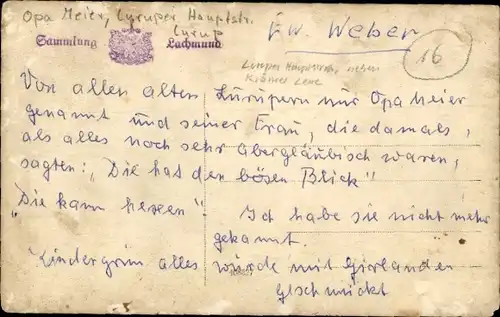 Opa Meier, Luruper Hauptstr.
Lurup
Sammlung Lachmund
Ew. Weber
16
Luruper Hauptstr., neben
Krämer Lene
Von allen alten Lurupern nur Opa Meier
genannt und seiner Frau, die damals,
als alles noch sehr abergläubisch waren,
sagten: „Die hat den bösen Blick"
„Die kann hexen". Ich habe sie nicht mehr
gekannt.
Kindergrün alles würde mit Girlanden
geschmückt